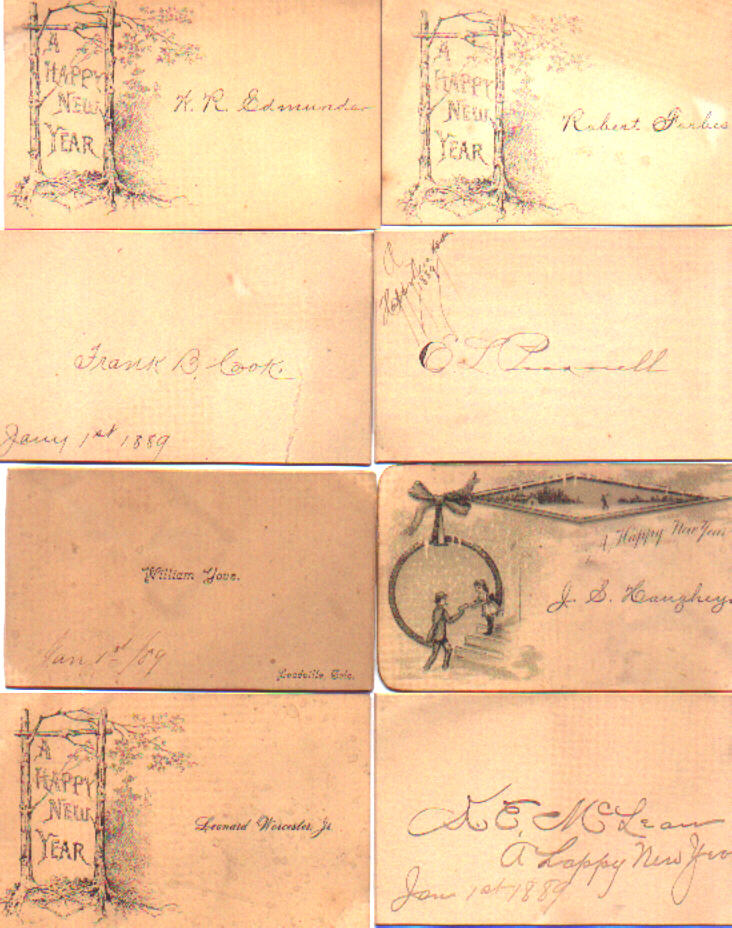 A
HAPPY
NEW
YEAR
A
HAPPY
NEW
YEAR
Robert Forbes
Frank B. Cook.
Jany 1st 1889
A
Happy New
1889
E. L.
William
Jan 1st /89
Leadville, Colo.
A Happy New Year
J. S. Haughey
A
HAPPY
NEW
YEAR
Leonard Worcester, Jr.
E. McLean
A Happy New
Jan 1st 1889